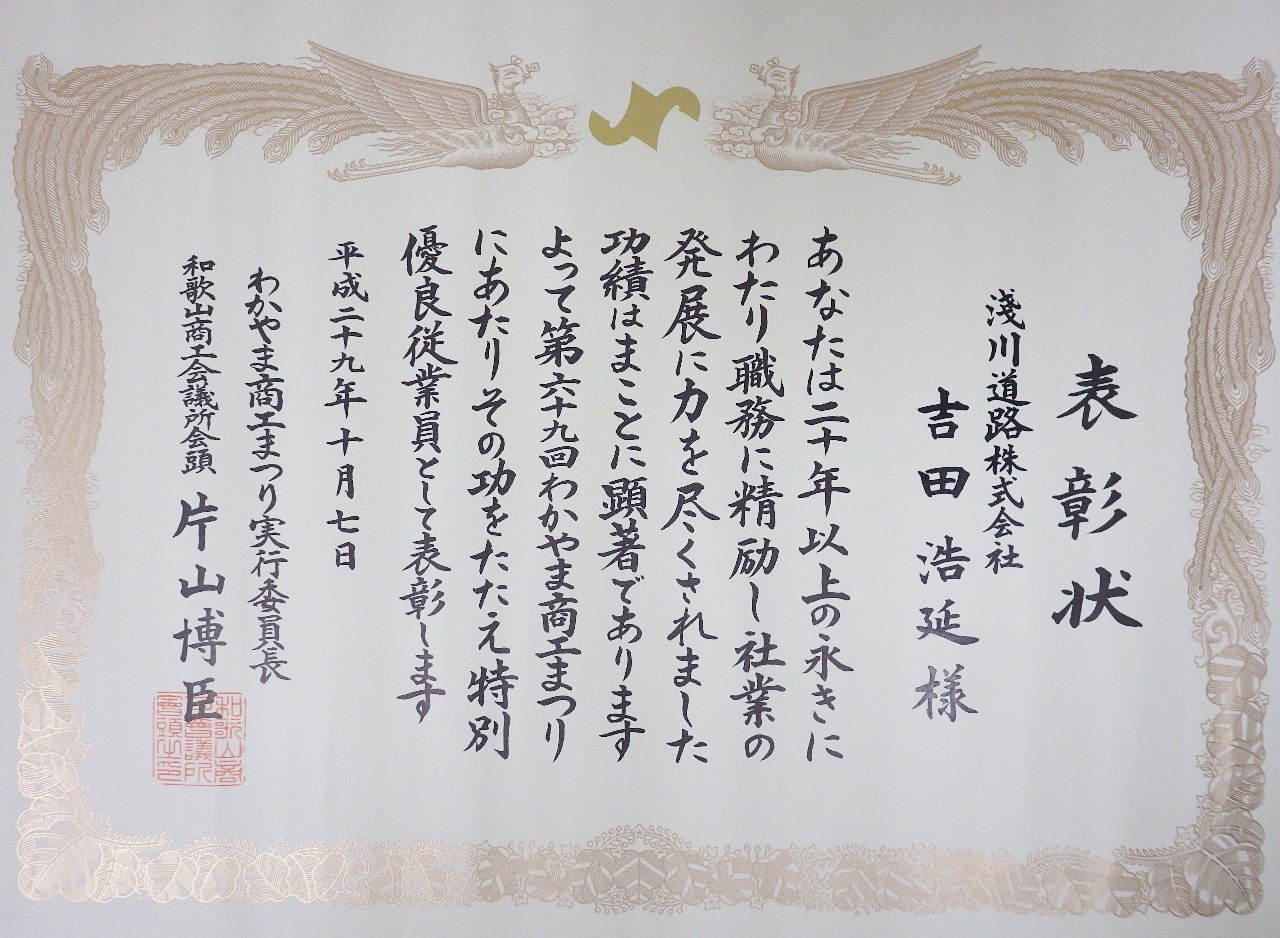 表彰状
淺川道路株式会社
吉田浩延様
あなたは二十年以上の永きに
わたり職務に精励し社業の
発展に力を尽くされました
功績はまことに顕著であります
よって第六十九回わかやま商工まつり
にあたりその功をたたえ特別
優良従業員として表彰します
平成二十九年十月七日
わかやま商工まつり実行委員長
和歌山商工会議所会頭 片山博臣
和歌山商
工會議所
會頭之印